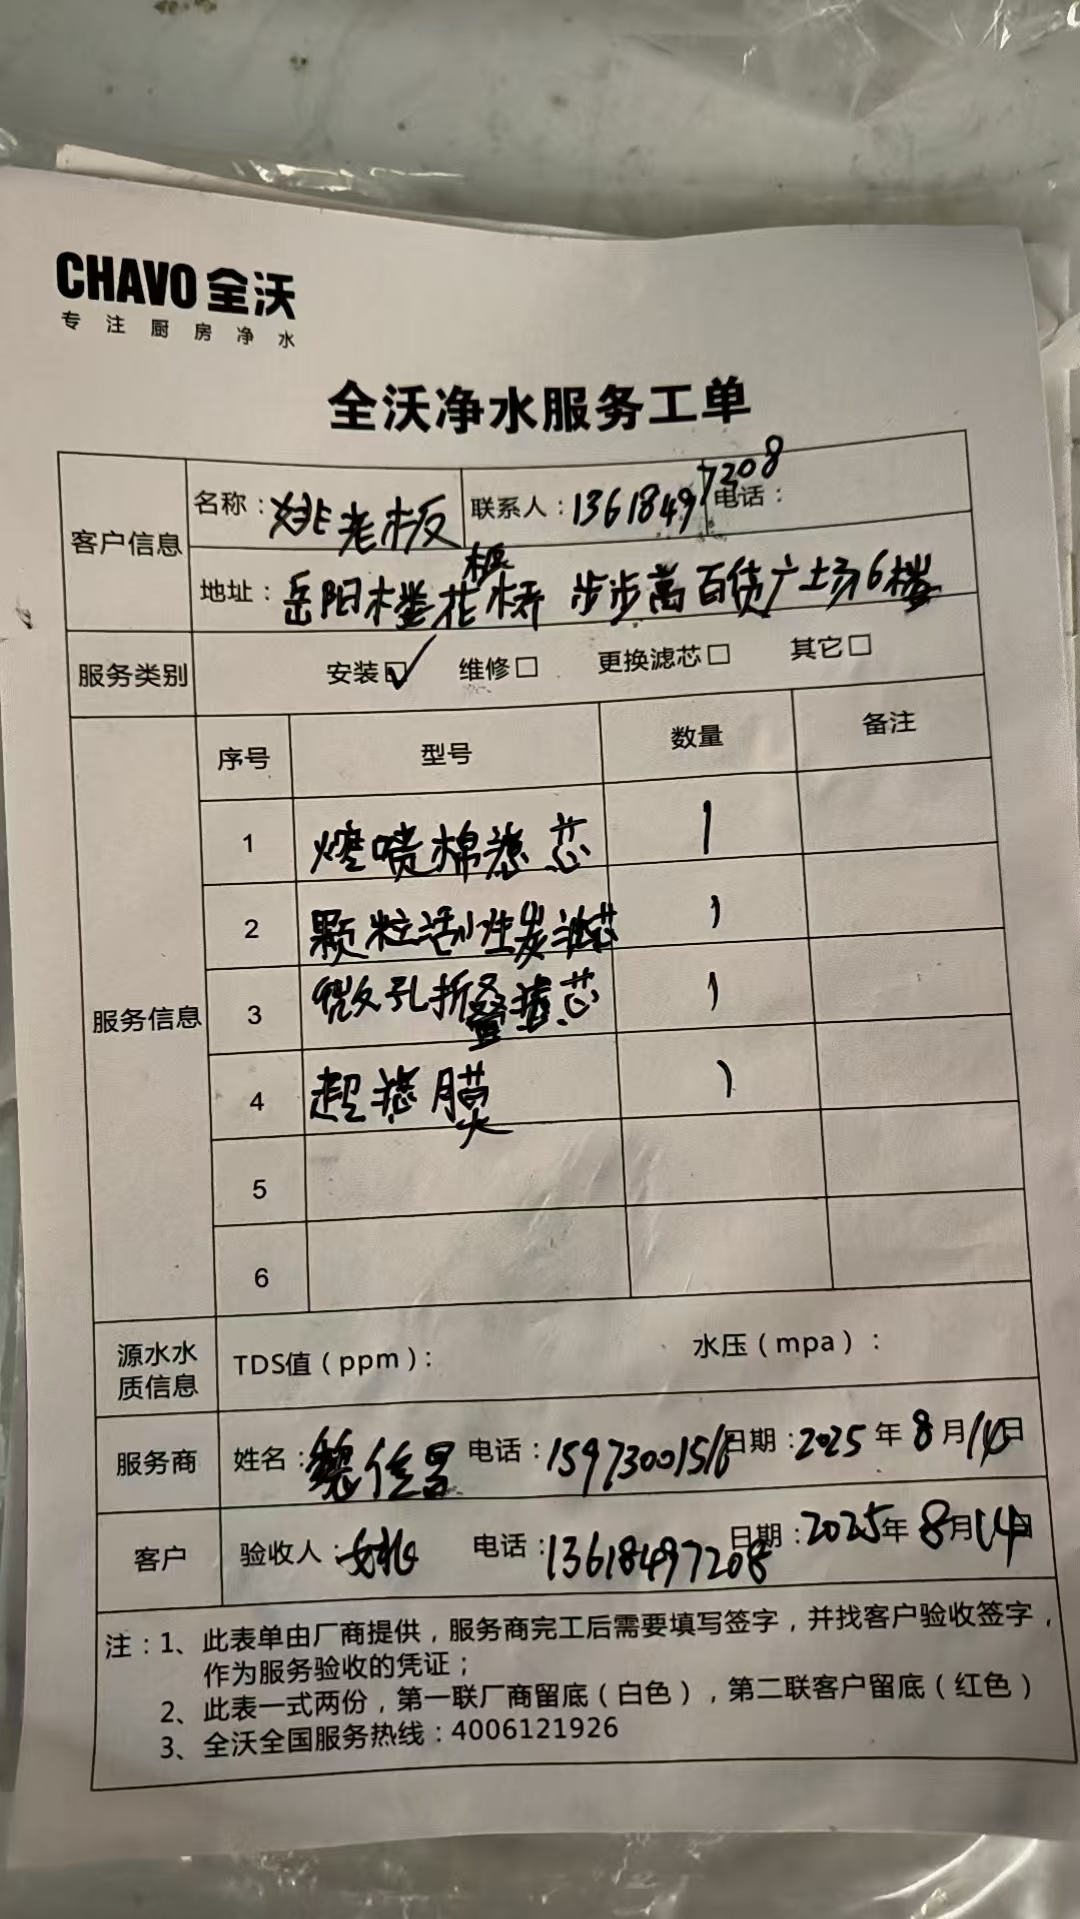 CHAVO 全沃
专注厨房净水
全沃净水服务工单
客户信息
名称：姚老板 联系人：13618497208 电话：
地址：岳阳楼花板桥 步步高百货广场6楼
服务类别 安装☑ 维修□ 更换滤芯□ 其它□
服务信息
序号 型号 数量 备注
1 熔喷棉滤芯 1
2 颗粒活性炭滤芯 1
3 微孔折叠滤芯 1
4 超滤膜 1
5
6
源水水质信息 TDS值（ppm）： 水压（mpa）：
服务商 姓名： 电话：15973001516 日期：2025年8月14日
客户 验收人：姚 电话：13618497208 日期：2025年8月14日
注：1、此表单由厂商提供，服务商完工后需要填写签字，并找客户验收签字，
作为服务验收的凭证；
2、此表一式两份，第一联厂商留底（白色），第二联客户留底（红色）
3、全沃全国服务热线：4006121926